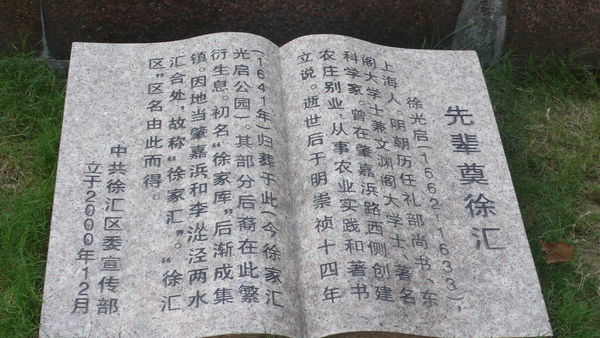 先辈奠徐汇
徐光启(1562-1633),
上海人,明朝历任礼部尚书、东
阁大学士兼文渊阁大学士、著名
科学家。曾在肇嘉浜路西侧创建
农庄别业,从事农业实践和著书
立说。逝世后于明崇祯十四年
(1641年)归葬于此(今徐家汇
光启公园)。其部分后裔在此繁
衍生息。初名“徐家厍”后渐成集
镇。因地当肇嘉浜和李漎泾两水
汇合处,故称“徐家汇”。“徐汇
区”区名由此而得。
中共徐汇区委宣传部
立于2000年12月